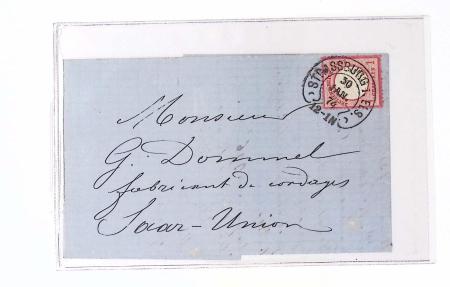 STRASSBURG i. ELS.
30
JAN.
74
12-1N.
Monsieur
G. Dommel
fabricant de cordages
Saar-Union